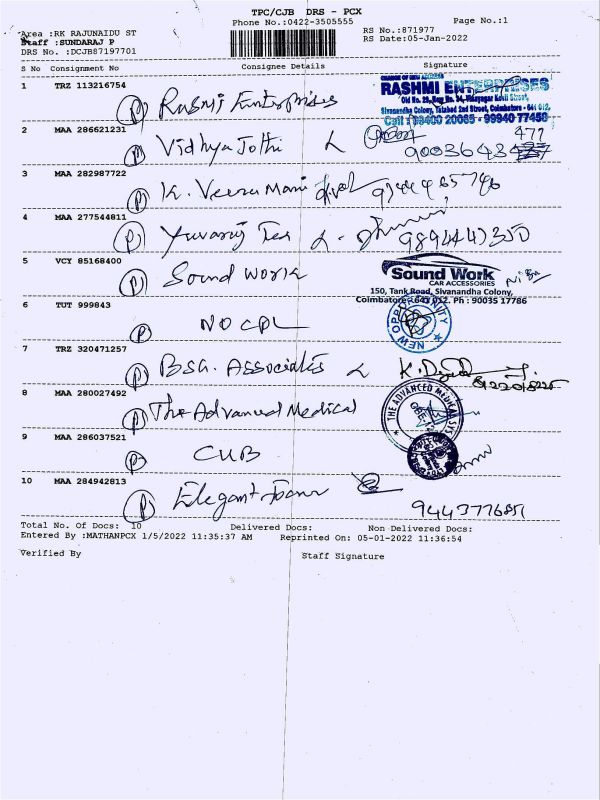 TPC/CJB DRS - PCX
Phone No.:0422-3505555 Page No.:1
Area :RK RAJUNAIDU ST RS No.:871977
Staff :SUNDARAJ P RS Date:05-Jan-2022
DRS No. :DCJB87197701
S No Consignment No Consignee Details Signature
1 TRZ 113216754
(P) Rasmi Enterprises
RASHMI ENTERPRISES
Old No. 25, New No. 34, Vidyagar Kovil Street,
Sivanandha Colony, Tatabad 2nd Street, Coimbatore - 641 012.
Cell : 98400 20085 - 99940 77458
2 MAA 286621231
(P) Vidhya Jothi
477
3 MAA 282987722
(P) K. Veera Mani
4 MAA 277544811
(P) Yuvaraj Tea
9894447350
5 VCY 85168400
(P) Sound work
Sound Work
CAR ACCESSORIES
150, Tank Road, Sivanandha Colony,
Coimbatore - 641 012. Ph : 90035 17786
6 TUT 999843
(P) NO CPL
NEW OPPORTUNITY
7 TRZ 320471257
(P) BSG. Associates
8 MAA 280027492
(P) The Advanced Medical
THE ADVANCED MEDICAL SYS
9 MAA 286037521
(P) CUB
10 MAA 284942813
(P) Elegant
Total No. Of Docs: 10 Delivered Docs: Non Delivered Docs:
Entered By :MATHANPCX 1/5/2022 11:35:37 AM Reprinted On: 05-01-2022 11:36:54
Verified By Staff Signature